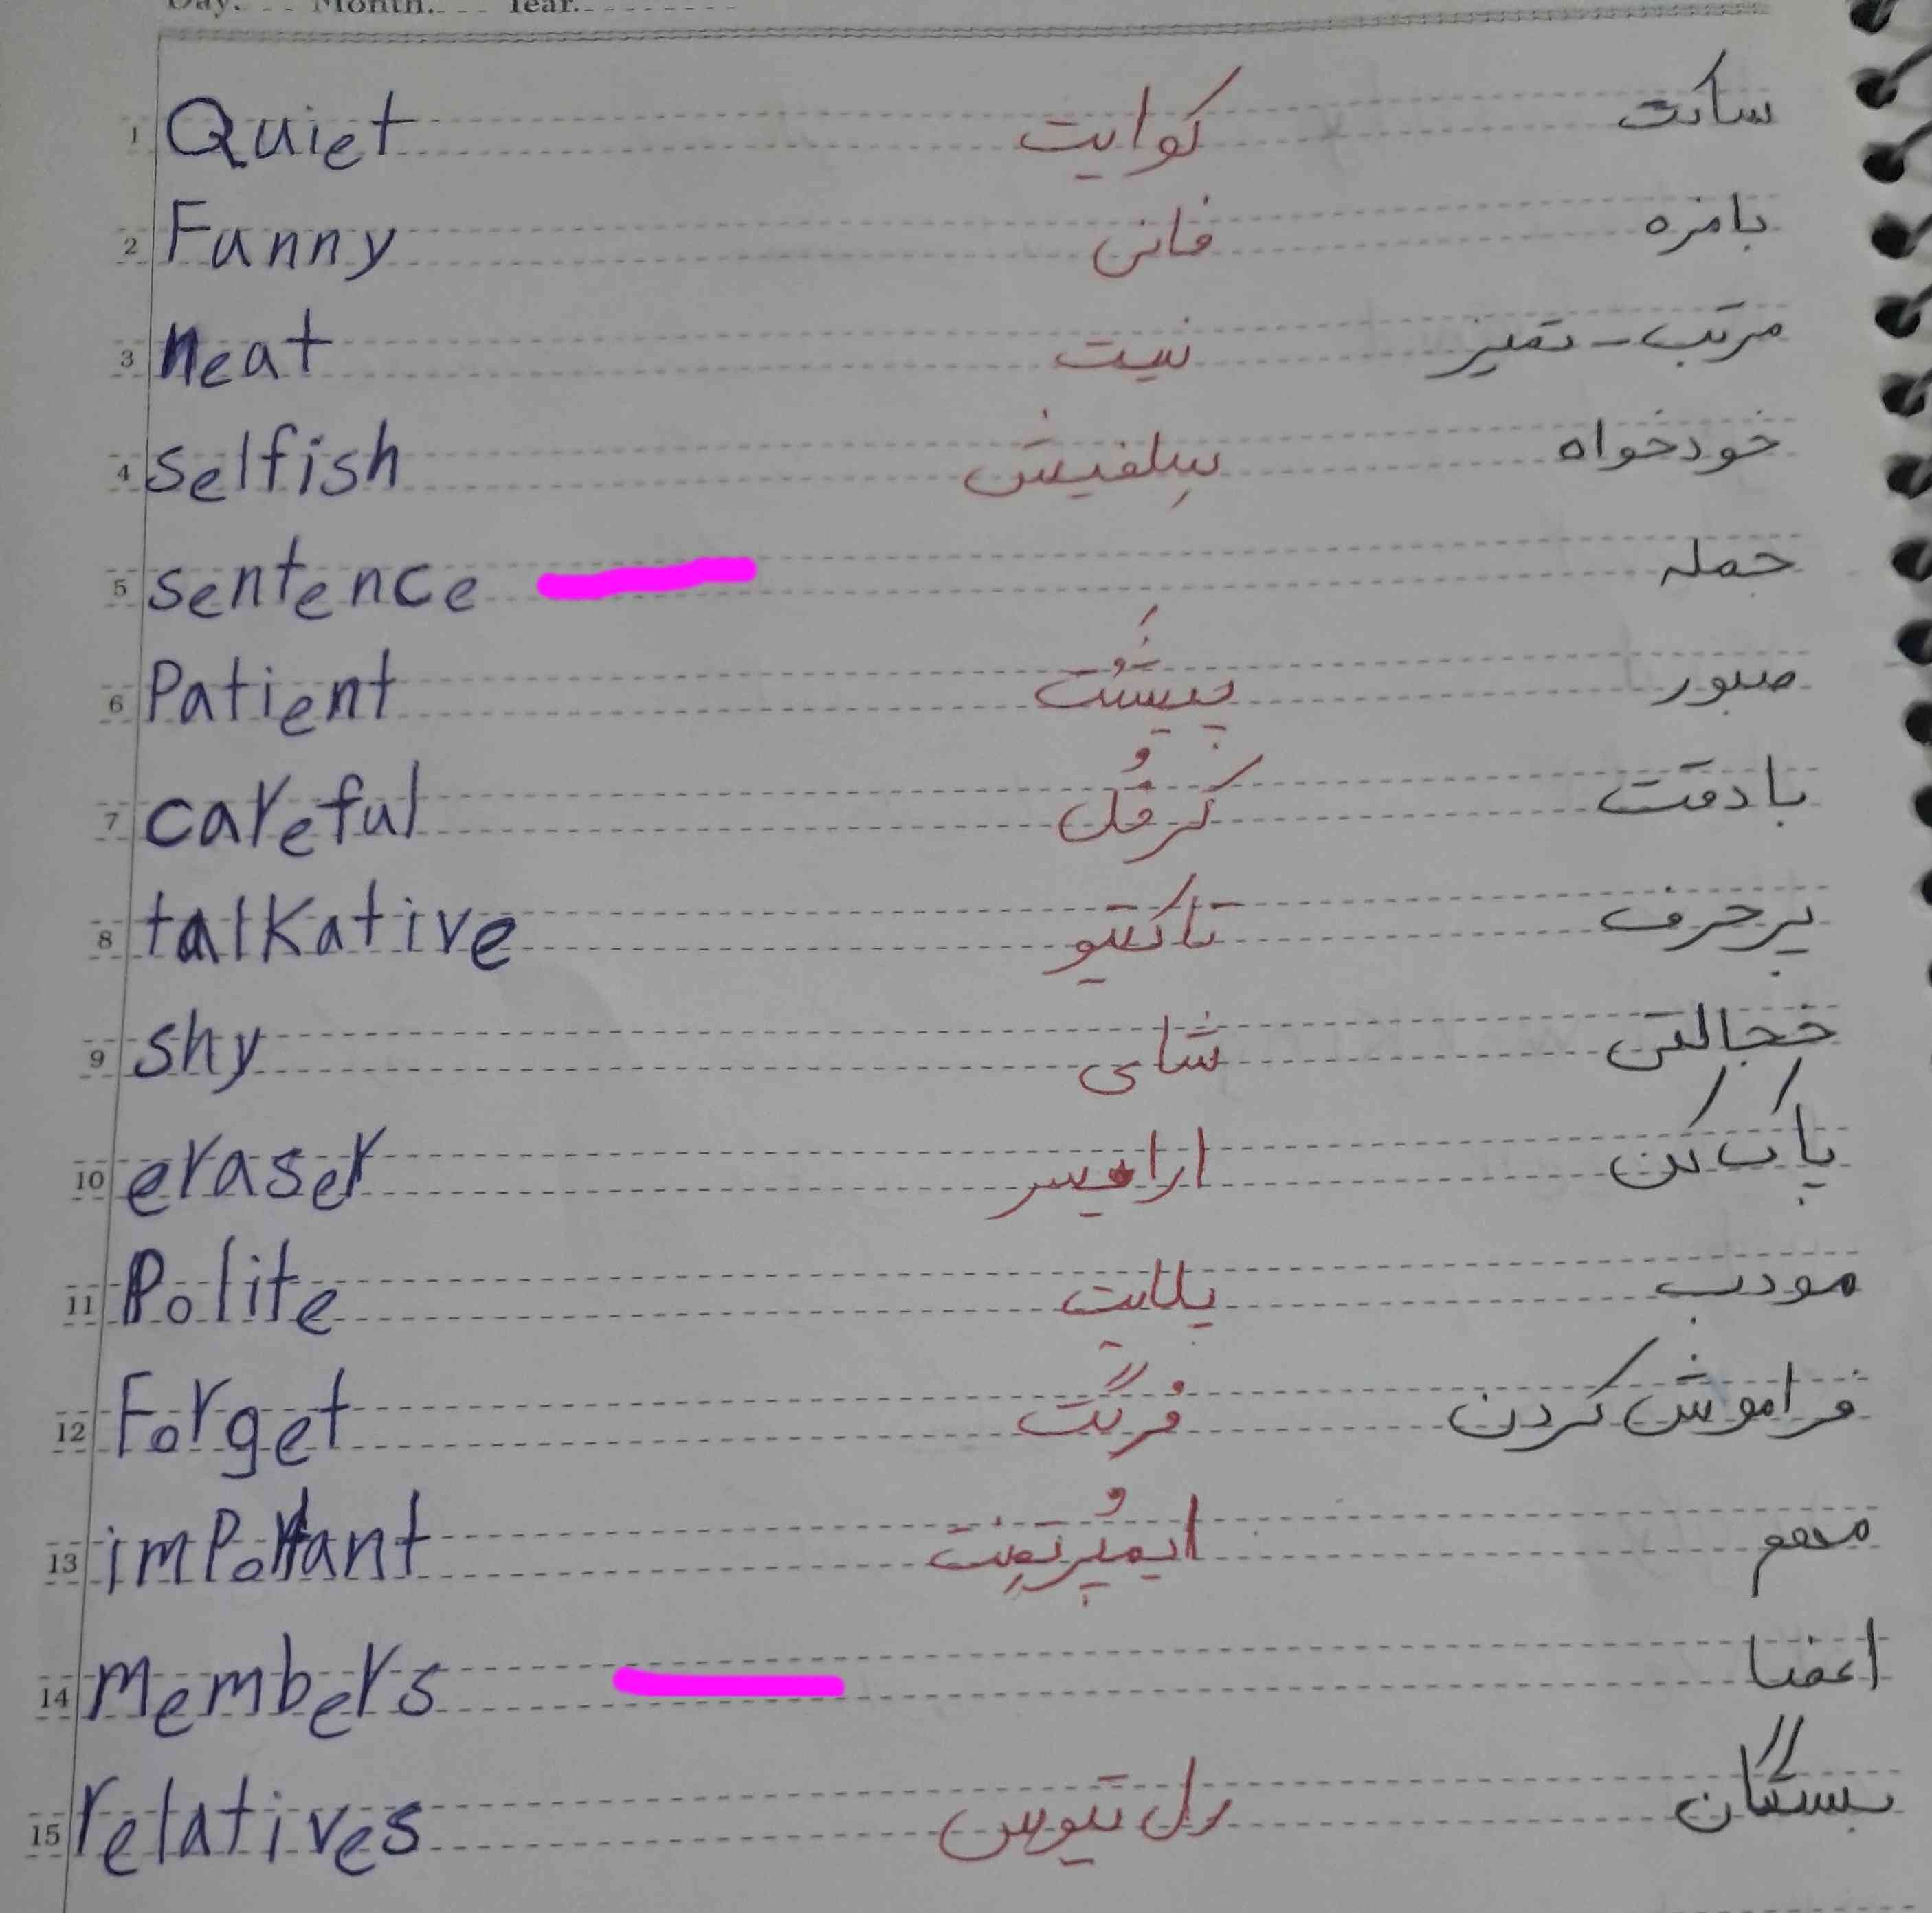 Day. Month. Year.
1 Quiet کوایت ساکت
2 Funny فانی بامزه
3 neat نیت مرتب - تمیز
4 selfish سِلفیش خودخواه
5 sentence جمله
6 Patient پیشنت صبور
7 careful کرفُل بادقت
8 talkative تاکتیو پرحرف
9 shy شای خجالتی
10 eraser ارایسر پاک کن
11 Polite پلایت مودب
12 Forget فُرگت فراموش کردن
13 important ایمپُرتِنت مهم
14 Members اعضا
15 relatives رل تیوس بستگان